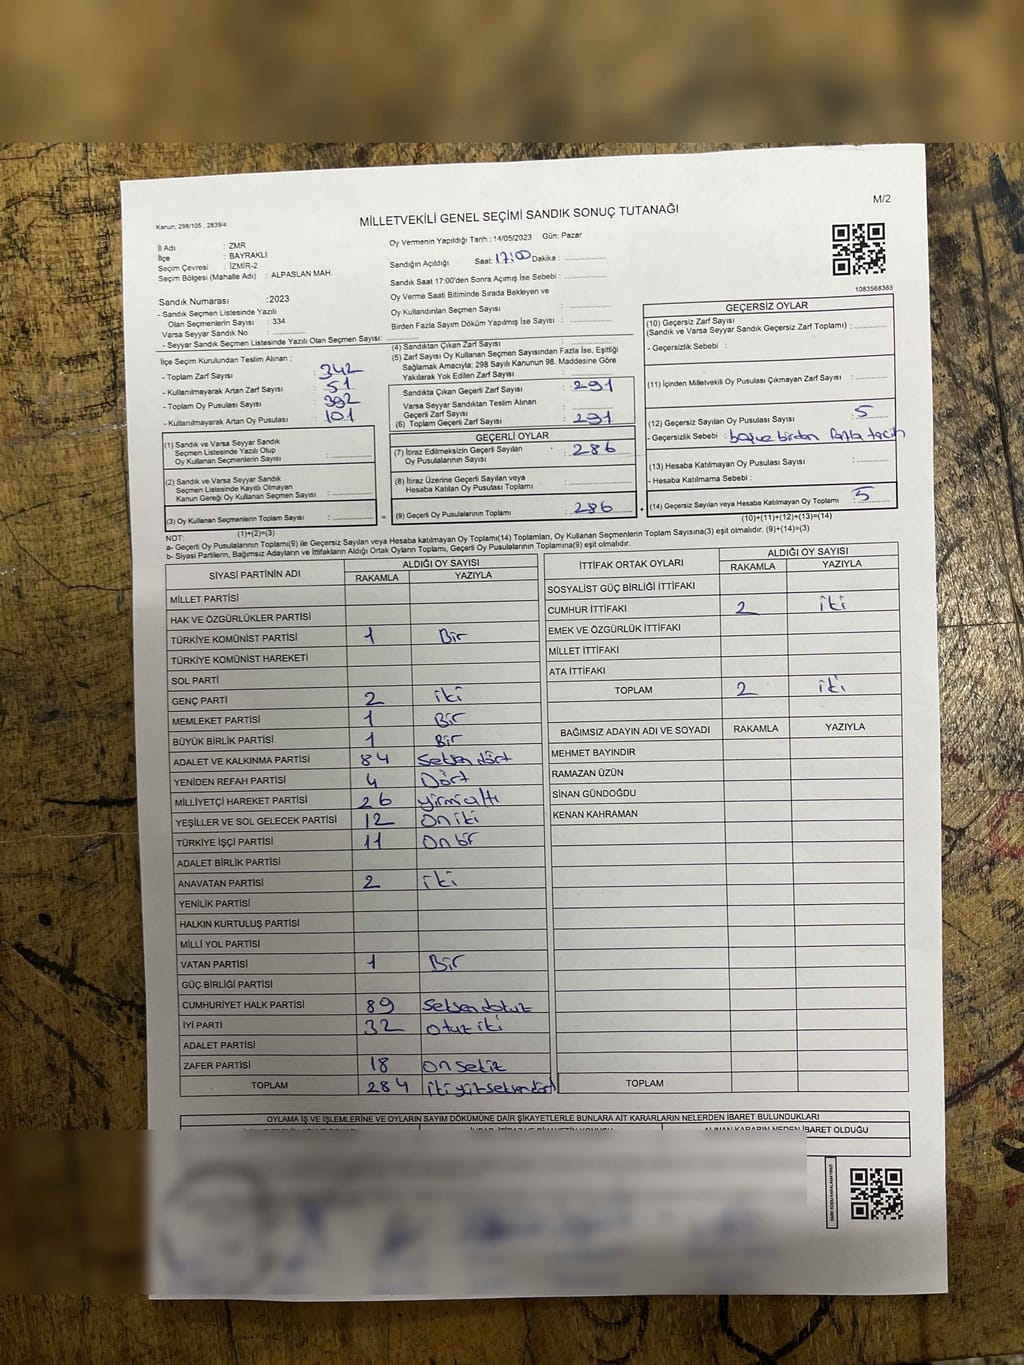 M/2
MİLLETVEKİLİ GENEL SEÇİMİ SANDIK SONUÇ TUTANAĞI
Kanun; 298/105 , 2839/4
İl Adı : ZMR
İlçe : BAYRAKLI
Seçim Çevresi : İZMİR-2
Seçim Bölgesi (Mahalle Adı) : ALPASLAN MAH.
Oy Vermenin Yapıldığı Tarih : 14/05/2023 Gün: Pazar
Sandığın Açıldığı Saat: 17:00 Dakika :
Sandık Saat 17:00'den Sonra Açımış İse Sebebi :
Oy Verme Saati Bitiminde Sırada Bekleyen ve
Oy Kullandırılan Seçmen Sayısı :
Birden Fazla Sayım Döküm Yapılmış İse Sayısı :
1083568365
Sandık Numarası :2023
- Sandık Seçmen Listesinde Yazılı
Olan Seçmenlerin Sayısı : 334
Varsa Seyyar Sandık No :
- Seyyar Sandık Seçmen Listesinde Yazılı Olan Seçmen Sayısı:
İlçe Seçim Kurulundan Teslim Alınan ;
- Toplam Zarf Sayısı : 342
- Kullanılmayarak Artan Zarf Sayısı : 51
- Toplam Oy Pusulası Sayısı : 392
- Kullanılmayarak Artan Oy Pusulası : 101
(1) Sandık ve Varsa Seyyar Sandık
Seçmen Listesinde Yazılı Olup
Oy Kullanan Seçmenlerin Sayısı :
(2) Sandık ve Varsa Seyyar Sandık
Seçmen Listesinde Kayıtlı Olmayan
Kanun Gereği Oy Kullanan Seçmen Sayısı :
(3) Oy Kullanan Seçmenlerin Toplam Sayısı :
(1)+(2)=(3)
(4) Sandıktan Çıkan Zarf Sayısı :
(5) Zarf Sayısı Oy Kullanan Seçmen Sayısından Fazla İse, Eşitliği
Sağlamak Amacıyla; 298 Sayılı Kanunun 98. Maddesine Göre
Yakılarak Yok Edilen Zarf Sayısı :
Sandıkta Çıkan Geçerli Zarf Sayısı : 291
Varsa Seyyar Sandıktan Teslim Alınan
Geçerli Zarf Sayısı :
(6) Toplam Geçerli Zarf Sayısı : 291
GEÇERLİ OYLAR
(7) İtiraz Edilmeksizin Geçerli Sayılan
Oy Pusulalarının Sayısı : 286
(8) İtiraz Üzerine Geçerli Sayılan veya
Hesaba Katılan Oy Pusulası Toplamı :
= (9) Geçerli Oy Pusulalarının Toplamı : 286 +
GEÇERSİZ OYLAR
(10) Geçersiz Zarf Sayısı
(Sandık ve Varsa Seyyar Sandık Geçersiz Zarf Toplamı) :
- Geçersizlik Sebebi :
(11) İçinden Milletvekili Oy Pusulası Çıkmayan Zarf Sayısı :
(12) Geçersiz Sayılan Oy Pusulası Sayısı : 5
- Geçersizlik Sebebi : birden fazla
(13) Hesaba Katılmayan Oy Pusulası Sayısı :
- Hesaba Katılmama Sebebi :
(14) Geçersiz Sayılan veya Hesaba Katılmayan Oy Toplamı : 5
(10)+(11)+(12)+(13)=(14)
NOT:
a- Geçerli Oy Pusulalarının Toplamı(9) ile Geçersiz Sayılan veya Hesaba Katılmayan Oy Toplamı(14) Toplamları, Oy Kullanan Seçmenlerin Toplam Sayısına(3) eşit olmalıdır. (9)+(14)=(3)
b- Siyasi Partilerin, Bağımsız Adayların ve İttifakların Aldığı Ortak Oyların Toplamı, Geçerli Oy Pusulalarının Toplamına(9) eşit olmalıdır.
SİYASİ PARTİNİN ADI ALDIĞI OY SAYISI
RAKAMLA YAZIYLA
MİLLET PARTİSİ
HAK VE ÖZGÜRLÜKLER PARTİSİ
TÜRKİYE KOMÜNİST PARTİSİ 1 Bir
TÜRKİYE KOMÜNİST HAREKETİ
SOL PARTİ
GENÇ PARTİ 2 iki
MEMLEKET PARTİSİ 1 Bir
BÜYÜK BİRLİK PARTİSİ 1 Bir
ADALET VE KALKINMA PARTİSİ 84 Seksen dört
YENİDEN REFAH PARTİSİ 4 Dört
MİLLİYETÇİ HAREKET PARTİSİ 26 yirmialtı
YEŞİLLER VE SOL GELECEK PARTİSİ 12 On iki
TÜRKİYE İŞÇİ PARTİSİ 11 On bir
ADALET BİRLİK PARTİSİ
ANAVATAN PARTİSİ 2 iki
YENİLİK PARTİSİ
HALKIN KURTULUŞ PARTİSİ
MİLLİ YOL PARTİSİ
VATAN PARTİSİ 1 Bir
GÜÇ BİRLİĞİ PARTİSİ
CUMHURİYET HALK PARTİSİ 89 Seksen dokuz
İYİ PARTİ 32 otuz iki
ADALET PARTİSİ
ZAFER PARTİSİ 18 On sekiz
TOPLAM 284 ikiyüzseksendört
İTTİFAK ORTAK OYLARI ALDIĞI OY SAYISI
RAKAMLA YAZIYLA
SOSYALİST GÜÇ BİRLİĞİ İTTİFAKI
CUMHUR İTTİFAKI 2 iki
EMEK VE ÖZGÜRLÜK İTTİFAKI
MİLLET İTTİFAKI
ATA İTTİFAKI
TOPLAM 2 iki
BAĞIMSIZ ADAYIN ADI VE SOYADI RAKAMLA YAZIYLA
MEHMET BAYINDIR
RAMAZAN ÜZÜN
SİNAN GÜNDOĞDU
KENAN KAHRAMAN
TOPLAM
OYLAMA İŞ VE İŞLEMLERİNE VE OYLARIN SAYIM DÖKÜMÜNE DAİR ŞİKAYETLERLE BUNLARA AİT KARARLARIN NELERDEN İBARET BULUNDUKLARI
ALINAN KARARIN NEDEN İBARET OLDUĞU